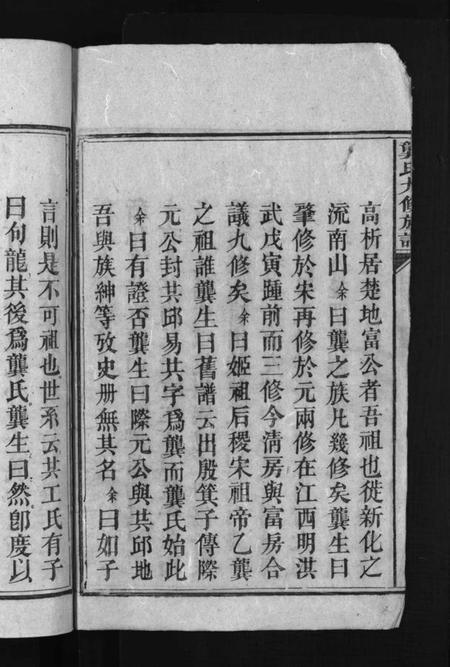 龔氏九修族譜
高析居楚地富公者吾祖也徙新化之
流南山余曰龔之族凡幾修矣龔生曰
肇修於宋再修於元兩修在江西明洪
武戊寅踵前而三修今清房與富房合
議九修矣余曰姬祖后稷宋祖帝乙龔
之祖誰龔生曰舊譜云出殷箕子傳際
元公封共邱易共字爲龔而龔氏始此
余曰有證否龔生曰際元公與共邱地
吾與族紳等攷史册無其名余曰如子
言則是不可祖也世系云共工氏有子
曰句龍其後爲龔氏龔生曰然卽度以